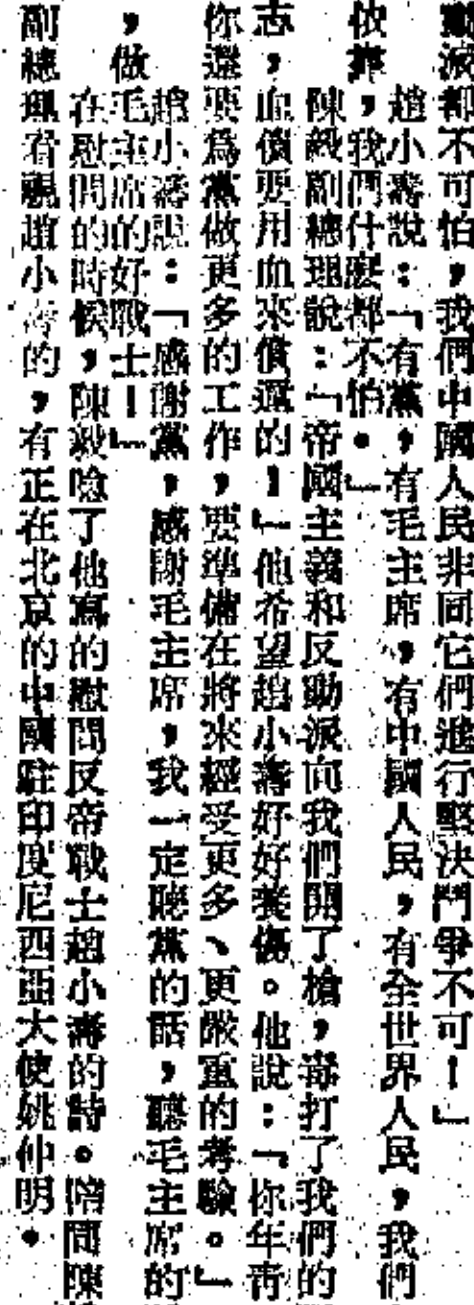 滅都不可怕，我們中國人民非同它們進行堅決鬥爭不可！」
趙小壽說：「有黨，有毛主席，有中國人民，有全世界人民，我們
依靠，我們什麼都不怕。」
陳毅副總理說：「帝國主義和反動派向我們開了槍，毒打了我們的
志，血債要用血來償還的！」他希望趙小壽好好養傷。他說：「你年青
你還要為黨做更多的工作，要準備在將來經受更多、更嚴重的考驗。」
趙小壽說：「感謝黨，感謝毛主席，我一定聽黨的話，聽毛主席的
，做毛主席的好戰士！」
在慰問的時候，陳毅唸了他寫的慰問反帝戰士趙小壽的詩。陪同陳
副總理看趙小壽的，有正在北京的中國駐印度尼西亞大使姚仲明。